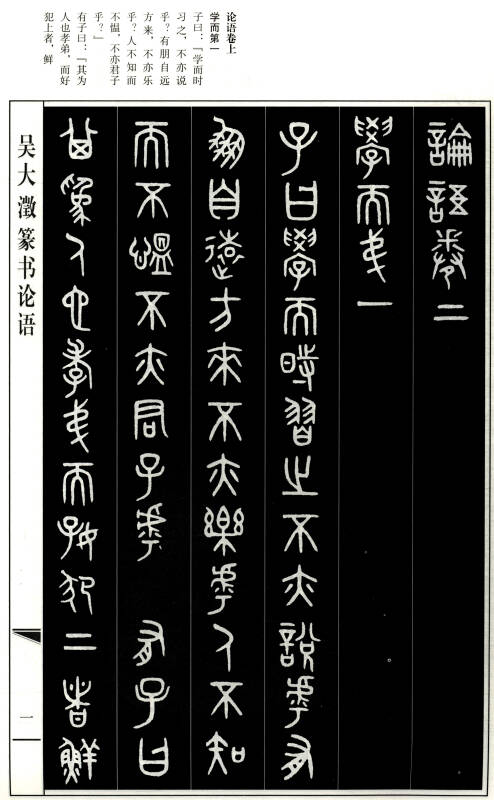 论语卷上
学而第一
子曰：「学而时
习之，不亦说
乎？有朋自远
方来，不亦乐
乎？人不知而
不愠，不亦君子
乎？」
有子曰：「其为
人也孝弟，而好
犯上者，鲜
論語卷上
學而弟一
子曰學而時習之不亦說乎有
朋自遠方來不亦樂乎人不知
而不慍不亦君子乎 有子曰
其為人也孝弟而好犯上者鮮
吴大澂篆书论语
一